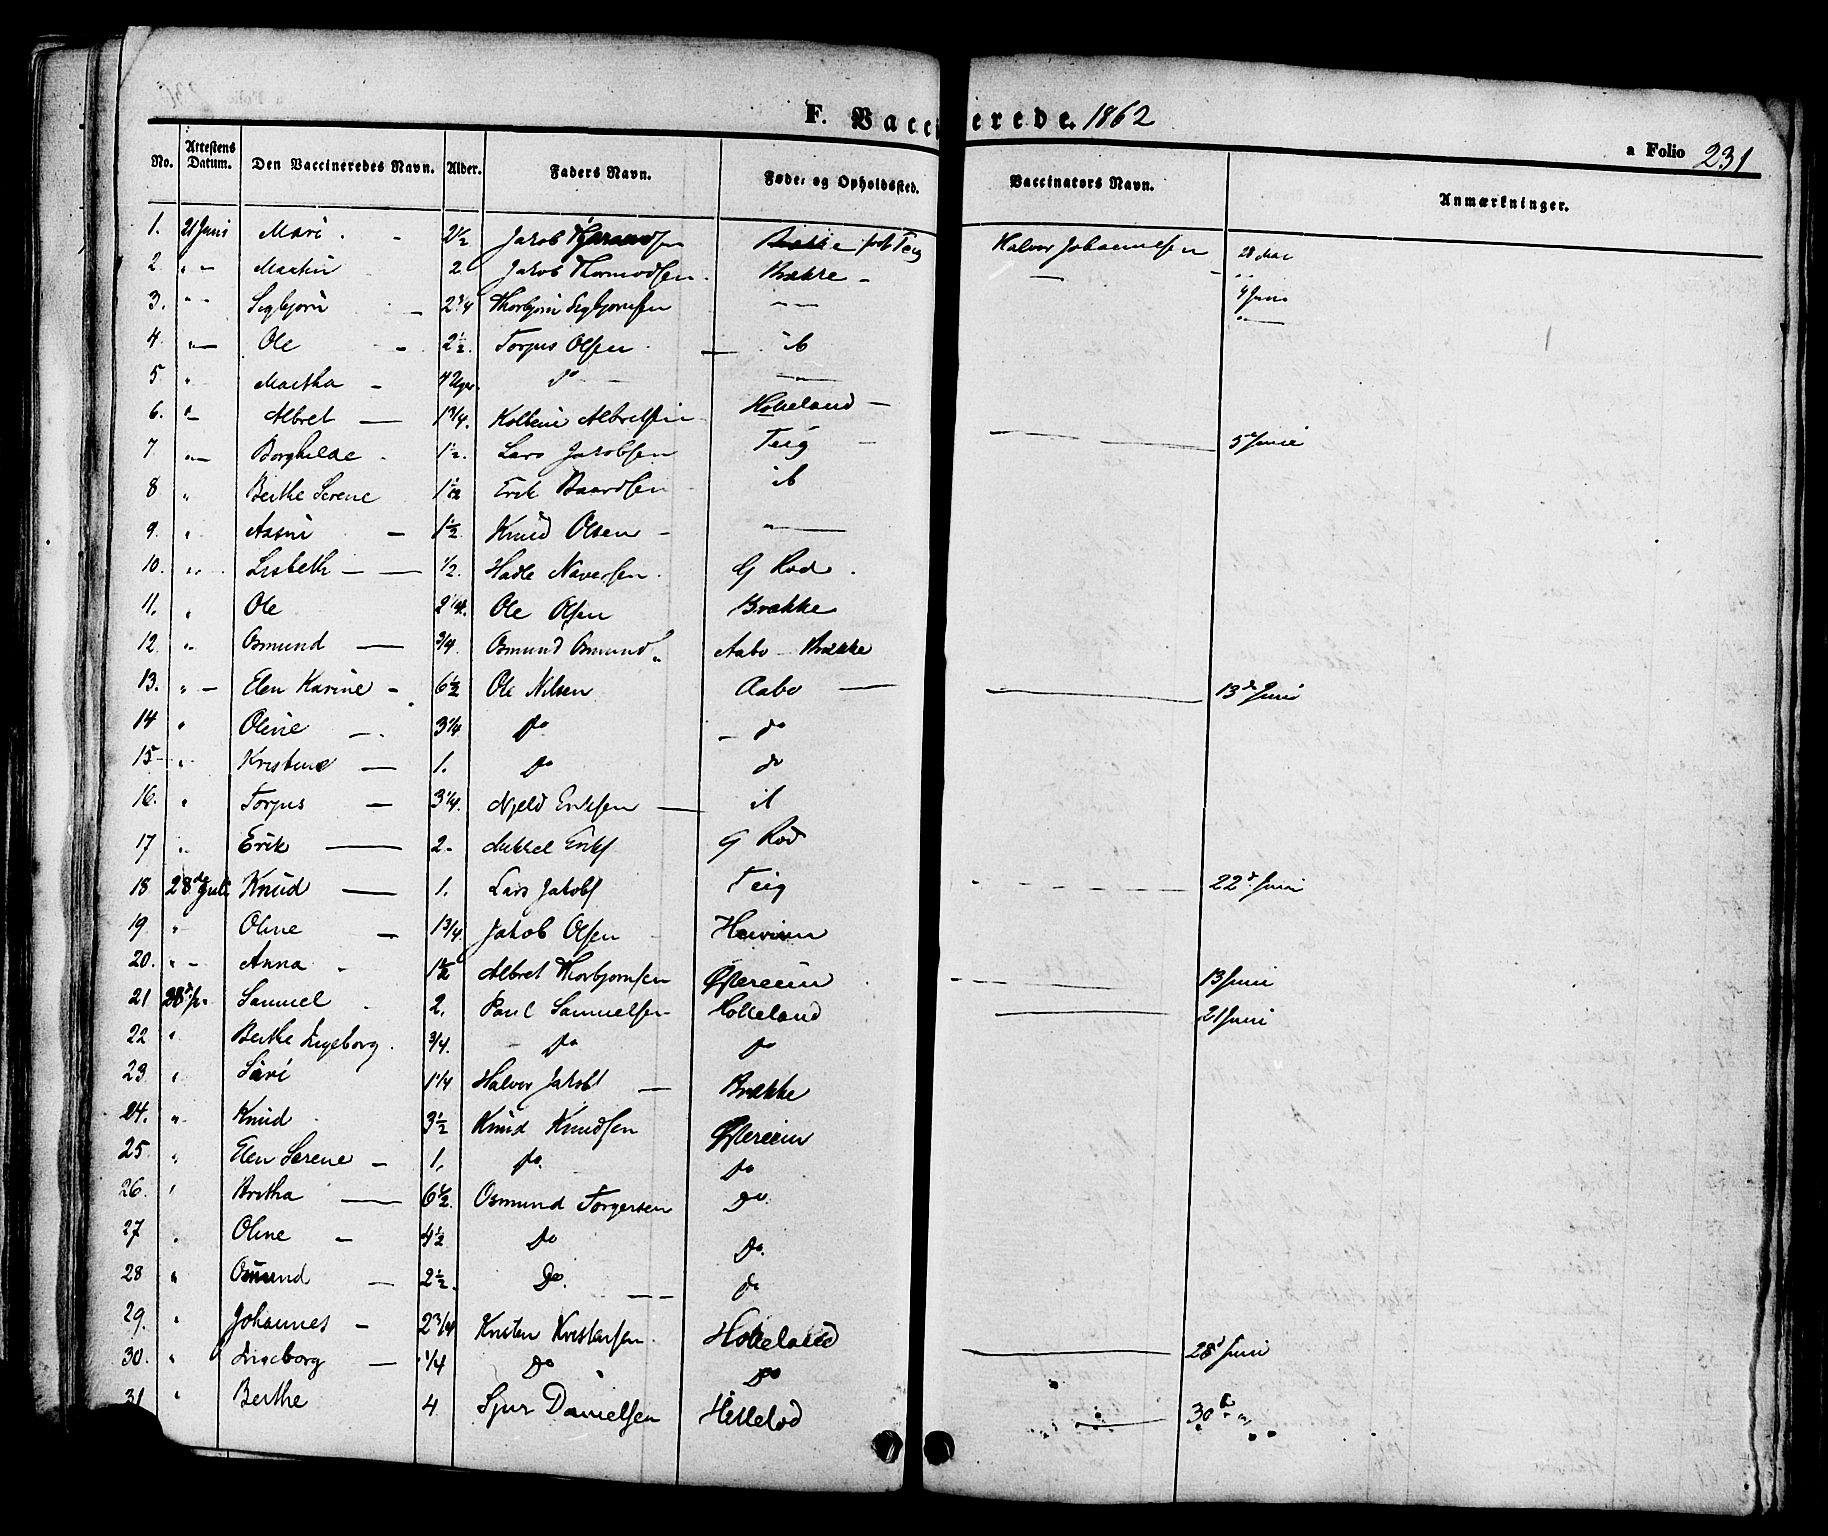 F. Vaccinerede. 1862
a Folio 231
No. Attestens Datum. Den Vaccineredes Navn. Alder. Faders Navn. Føde- og Opholdssted. Vaccinators Navn. Anmærkninger.
1. 21 Juni Mari 2 1/2 Jakob Teig Halvor Johannessen 28 Mai
2 " Martin 2 Jakob Thormodsen Brække — — "
3. " Sigbjørn 2 3/4 Thorbjørn Sigbjørnsen — 4 Juni
4. " Ole 2 1/2 Torjus Olsen ib "
5 " Martha 4 Uger do —
6. " Albret 1 3/4. Kolbein Albretsen Hokeland
7. " Borghilde 1 1/2. Lars Jakobsen Teig — 5 Juni
8 " Berthe Serene 1 1/2 Erik Baardsen ib
9. " 1 1/2 Knud Olsen —
10. " Lisbeth 1/2. Hadle Naversen G Rød
11. " Ole 2 1/4. Ole Olsen Brække
12 " Osmund 3/4. Osmund Osmunds Aabo Brække
13. " Elen Karine 6 1/2 Ole Nilsen Aabo — 13de Juni
14 " Oline 3 1/4 Do do
15 " Kristine 1. Do do
16. " Torjus 3 1/4. Njeld Eriksen ib
17 " Erik 2 Mikkel Eriks G Rød
18 28de Juli Knud 1. Lars Jakobs Teig — 22d Juni
19. " Oline 1 3/4. Jakob Olsen
20. " Anna 1 1/2 Albret Thorbjørnsen Østereim — 13 Juni
21 28d Samuel 2. Paul Samuelsen Hokeland — 21 Juni
22 " Berthe Ingeborg 3/4. Do do
23 " Siri 1 1/4 Halvor Jakobs Brække
24. " Knud 3 1/2 Knud Knudsen Østereim
25 " Elen Serene 1. do do
26. " Britha 6 1/2. Osmund Torgersen Do
27 " Oline 4 1/2 Do Do.
28 " Osmund 2 1/2. Do. do
29. " Johannes 2 3/4 Kristen Kristensen Hokeland
30. " Ingeborg 1/4 Do Do — 28d Juni
31 " Berthe 4 Sjur Danielsen — 30